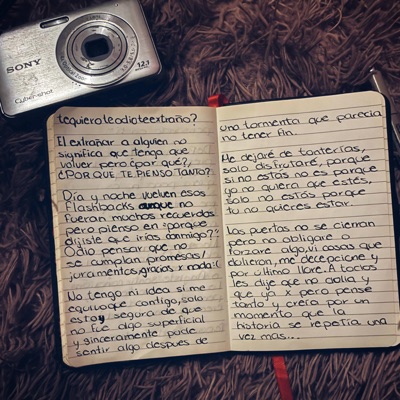 SONY
Cyber-shot
12.1
tequieroteodioteextraño?
El extrañar a alguien no
significa que tenga que
volver pero ¿por qué?,
¿POR QUE TE PIENSO TANTO?
Día y noche vuelven esos
flashbacks aunque no
fueran muchos recuerdos
pero pienso en "porque
dijiste que irías conmigo?"
Odio pensar que no
se cumplan promesas/
juramentos, gracias x nada:(
No tengo ni idea si me
equivoque contigo, solo
estoy segura de que
no fue algo superficial
y sinceramente pude
sentir algo después de
una tormenta que parecía
no tener fin.
Me dejaré de tonterías,
solo disfrutaré, porque
si no estás no es porque
yo no quiera que estés,
solo no estás porque
tu no quieres estar.
Las puertas no se cierran
pero no obligaré o
forzaré algo, si cosas que
dolieron, me decepcioné y
por último lloré. A todos
les dije que no dolía y
que ya x pero pensé
tanto y creía por un
momento que la
historia se repetía una
vez más...